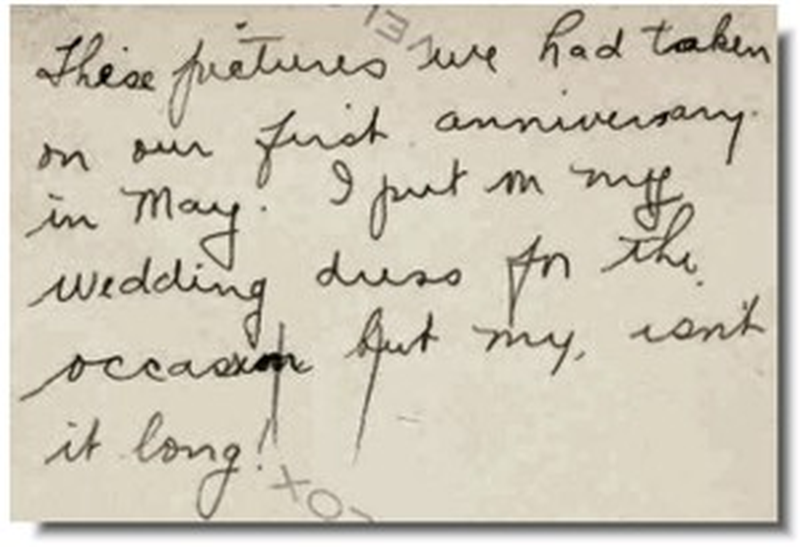 These pictures we had taken
on our first anniversary
in May. I put on my
wedding dress for the
occasion but my, isn't
it long!